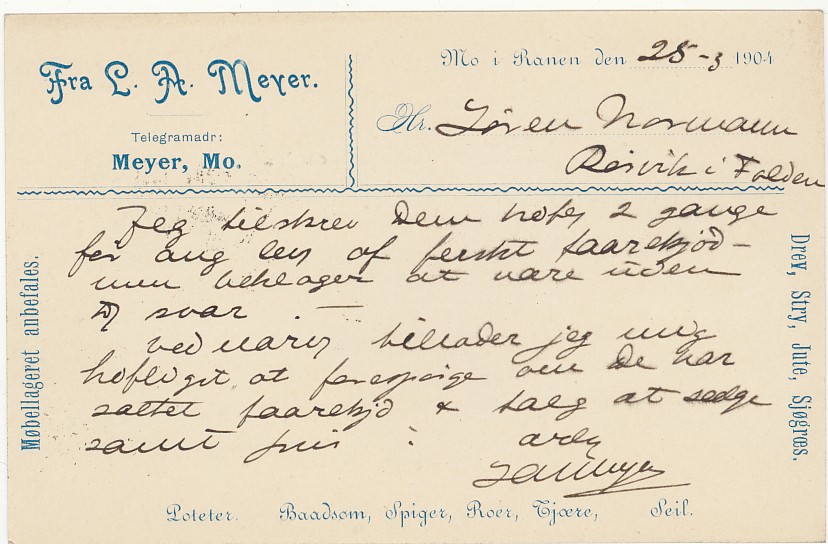 Fra L. A. Meyer.
Telegramadr:
Meyer, Mo.
Mo i Ranen den 25-3 1904
Hr. Søren Normann
Røsvik i Folden
Jeg tilskrev Dem 2 gange
før ang lev af ferskt faarekjød-
men beklager at være uden
svar. —
Ved nærv tillader jeg mig
høfligst at forespørge om De har
saltet faarekjød & talg at sælge
samt pris :
ærb
LAMeyer
Møbellageret anbefales.
Drev, Stry, Jute, Sjøgræs.
Poteter. Baadsom, Spiger, Roer, Tjære, Seil.